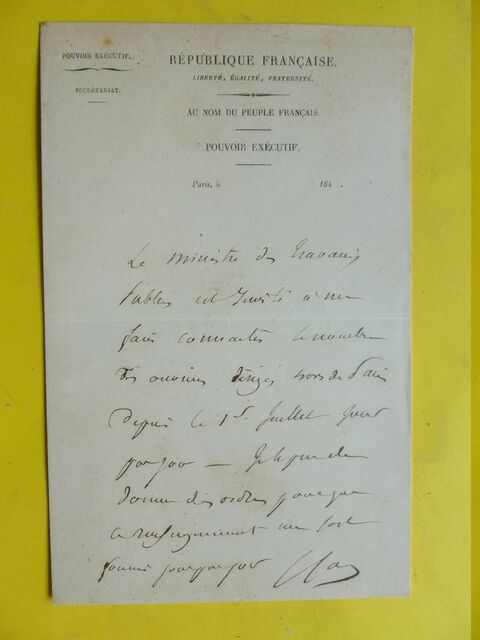 POUVOIR EXÉCUTIF.
SECRÉTARIAT.
RÉPUBLIQUE FRANÇAISE.
LIBERTÉ, ÉGALITÉ, FRATERNITÉ.
AU NOM DU PEUPLE FRANÇAIS.
POUVOIR EXÉCUTIF.
Paris, le 184 .
Le Ministre des Travaux
Publics est invité à me
faire connaitre le nombre
des ouvriers dirigés hors de Paris
depuis le 1er Juillet jour
par jour — Je le prie de
donner des ordres pour que
ce renseignement me soit
fourni jour par jour